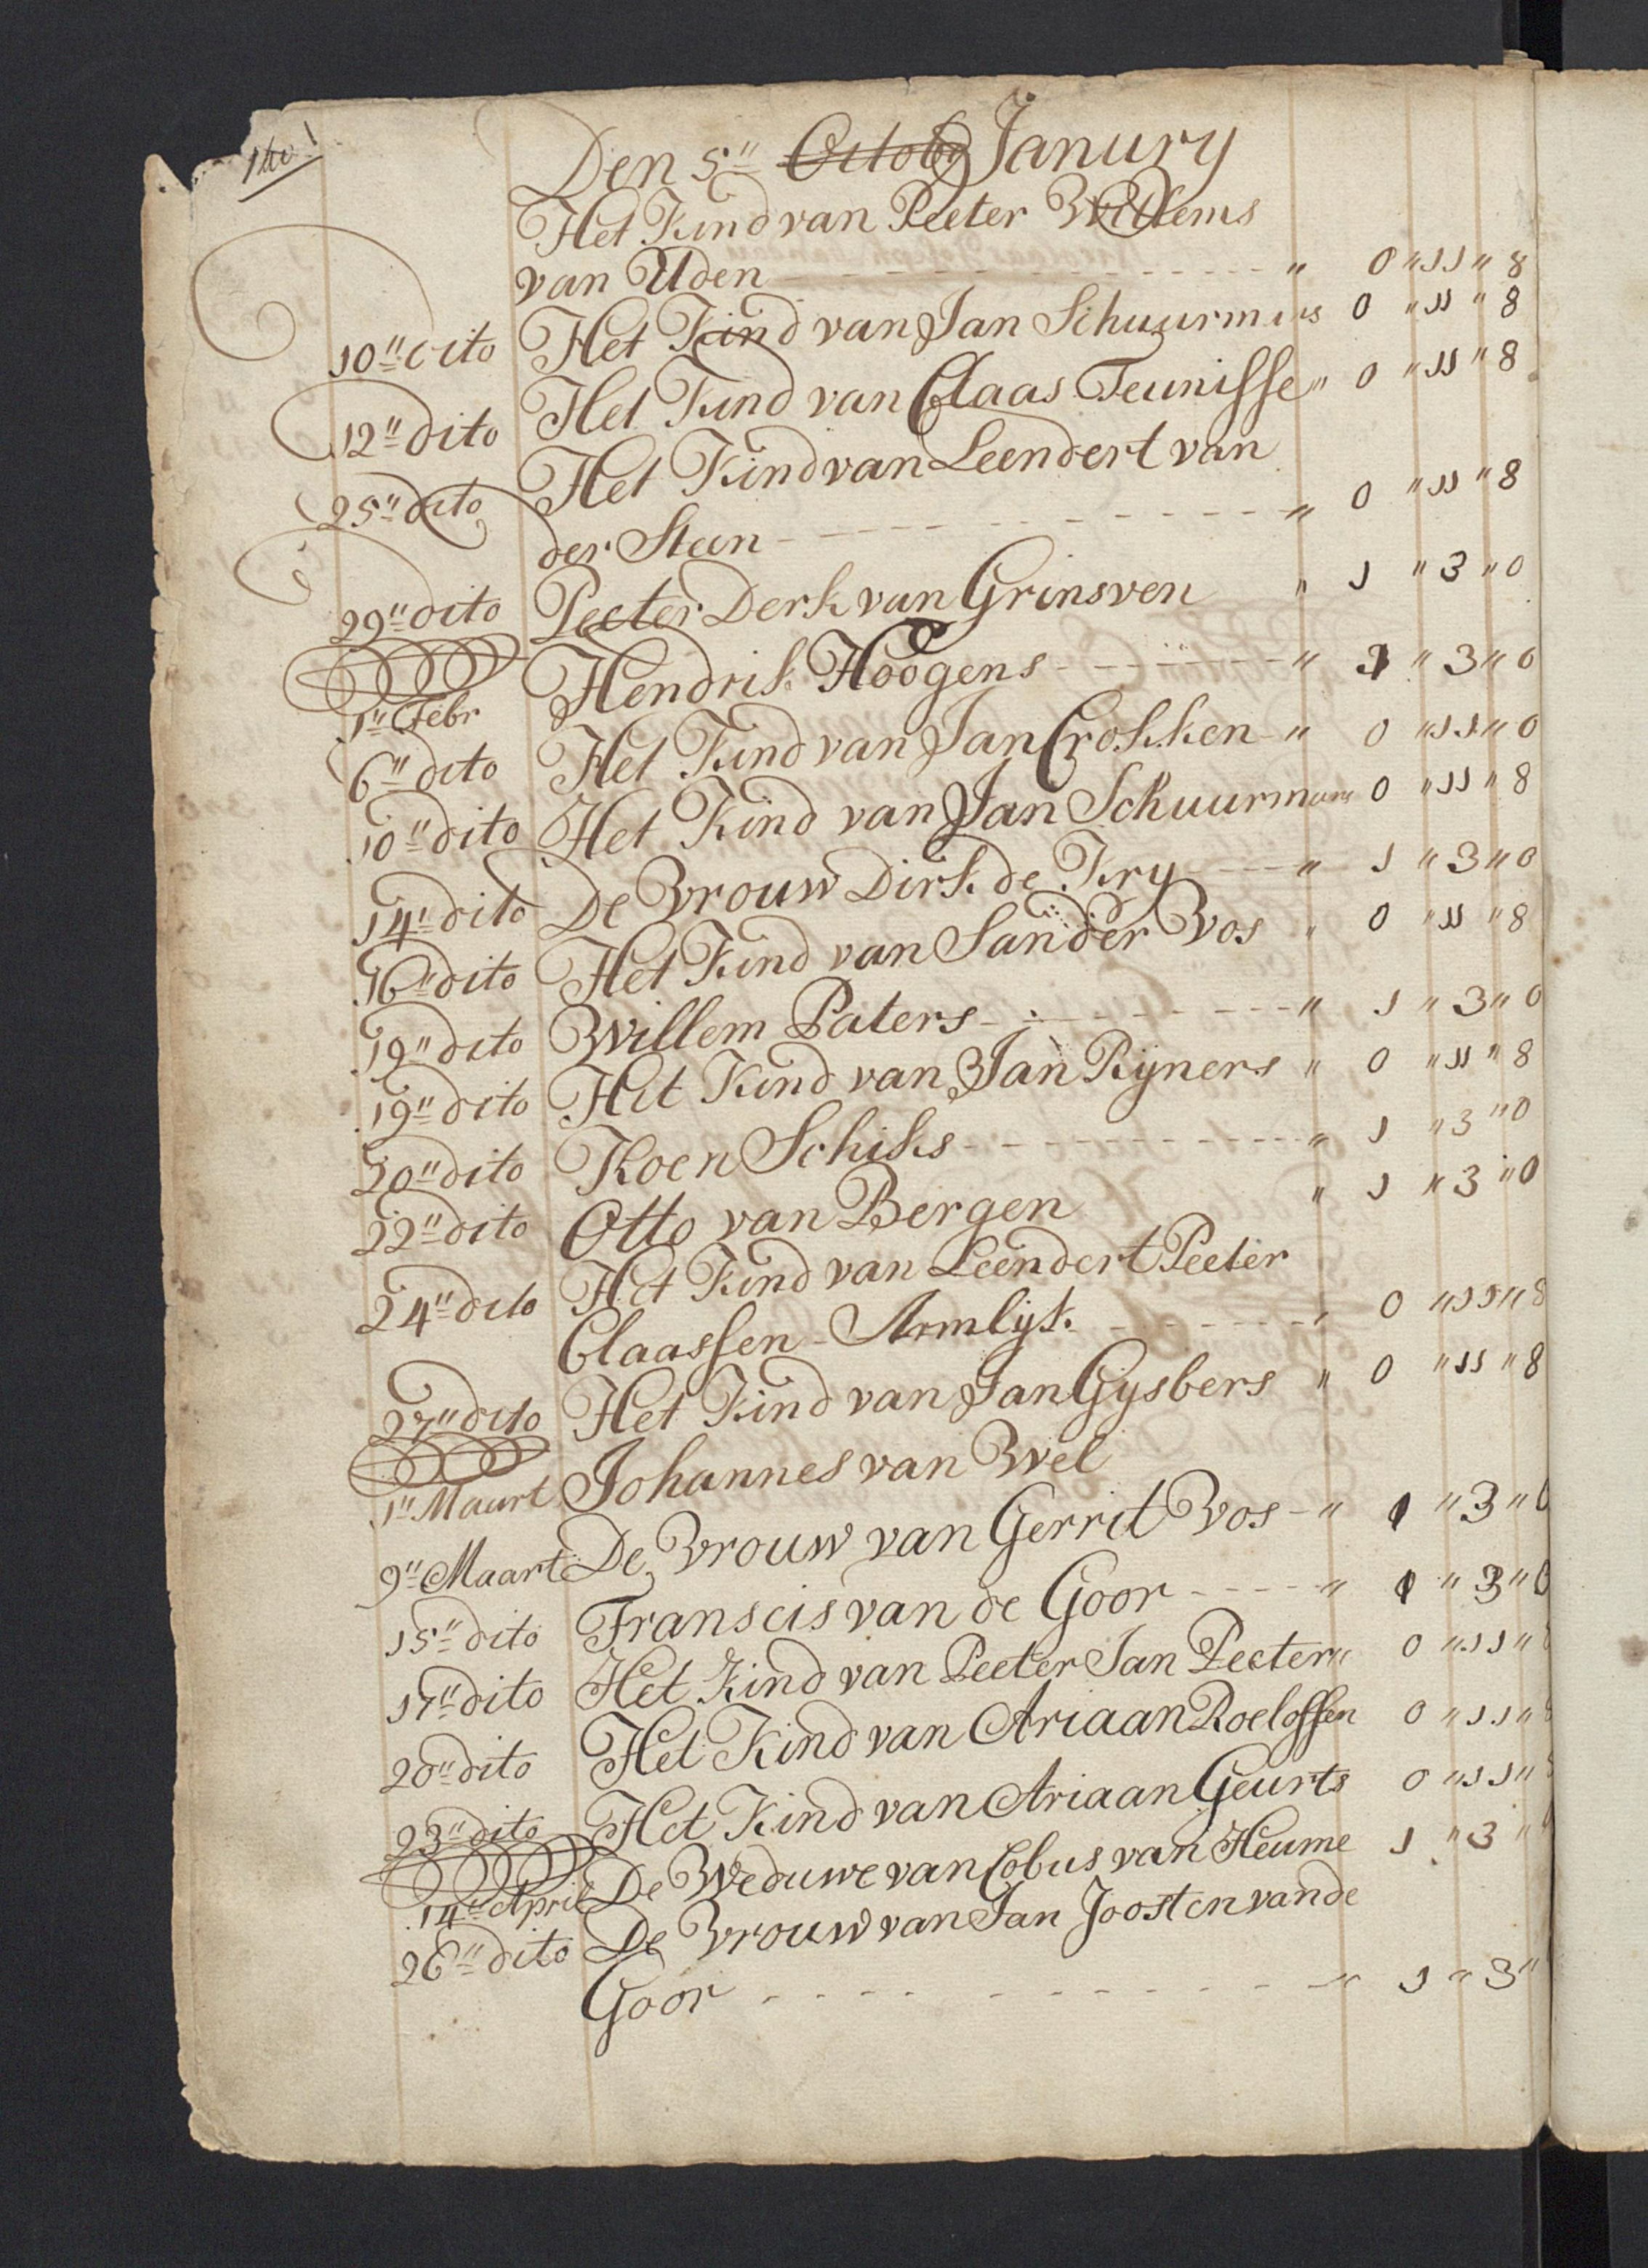 Den 5" Octob Janury
Het Kind van Peeter Willems
van Uden " 0 " 11 " 8
10" dito Het Kind van Jan Schuurmans 0 " 11 " 8
12" dito Het Kind van Claas Teunisse " 0 " 11 " 8
25" dito Het Kind van Leendert van
der Steen " 0 " 11 " 8
29" dito Peeter Derk van Grinsven " 1 " 3 " 0
1" Febr Hendrik Hoogens " 1 " 3 " 0
6" dito Het Kind van Jan Crokken " 0 " 11 " 0
10" dito Het Kind van Jan Schuurmans 0 " 11 " 8
14" dito De Vrouw Dirk de Kry " 1 " 3 " 0
16" dito Het Kind van Sander Vos " 0 " 11 " 8
19" dito Willem Paters " 1 " 3 " 0
19" dito Het Kind van Jan Rijners " 0 " 11 " 8
20" dito Koen Schiks " 1 " 3 " 0
22" dito Otto van Bergen " 1 " 3 " 0
24" dito Het Kind van Leendert Peeter
Claassen - Armlijk " 0 " 11 " 8
27" dito Het Kind van Jan Gysbers " 0 " 11 " 8
1" Maart Johannes van Wel
9" Maart De Vrouw van Gerrit Vos " 1 " 3 " 0
15" dito Franscis van de Goor " 1 " 3 " 0
17" dito Het Kind van Peeter Jan Peeter " 0 " 11 "
20" dito Het Kind van Ariaan Roeloffen 0 " 11 "
23" dito Het Kind van Ariaan Geurts 0 " 11 "
14" April De Weduwe van Cobus van Heume 1 " 3 "
26" dito De Vrouw van Jan Joosten vande
Goor " 1 " 3 "